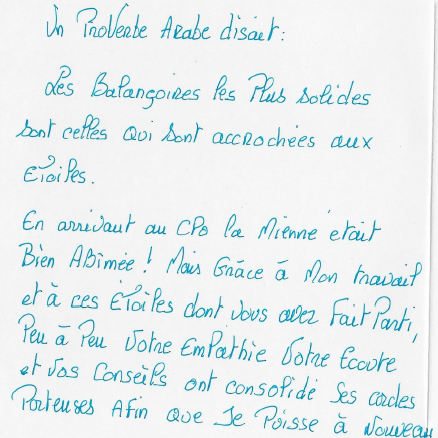 Un Proverbe Arabe disait :
Les Balançoires les Plus Solides
sont celles qui sont accrochées aux
Etoiles.
En arrivant au CPO la Mienne était
Bien Abîmée ! Mais Grâce à Mon travail
et à ces Etoiles dont Vous avez Fait Parti,
Peu à Peu Votre Empathie Votre Ecoute
et Vos Conseils ont consolidé Ses cordes
Porteuses Afin que Je Puisse à Nouveau